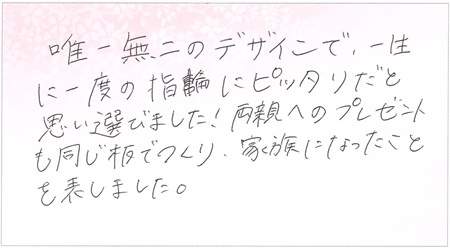 唯一無二のデザインで、一生
に一度の指輪にピッタリだと
思い選びました！両親へのプレゼント
も同じ板でつくり、家族になったこと
を表しました。